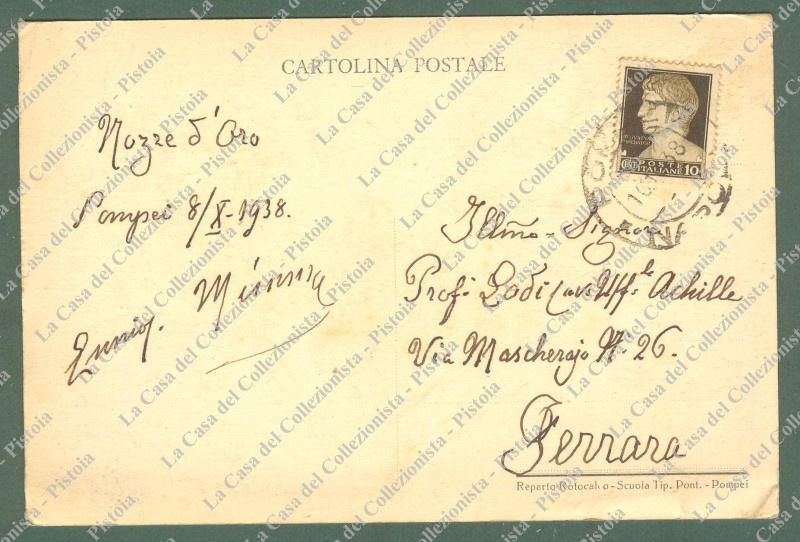 CARTOLINA POSTALE
Nozze d'Oro
Pompei 8/X-1938.
Mimma
POSTE
ITALIANE 10
Illmo- Signor
Prof. Lodi Cav. Uff.le Achille
Via Mascherajo N. 26.
Ferrara
Reparto Rotocalco - Scuola Tip. Pont. - Pompei
La Casa del Collezionista - Pistoia